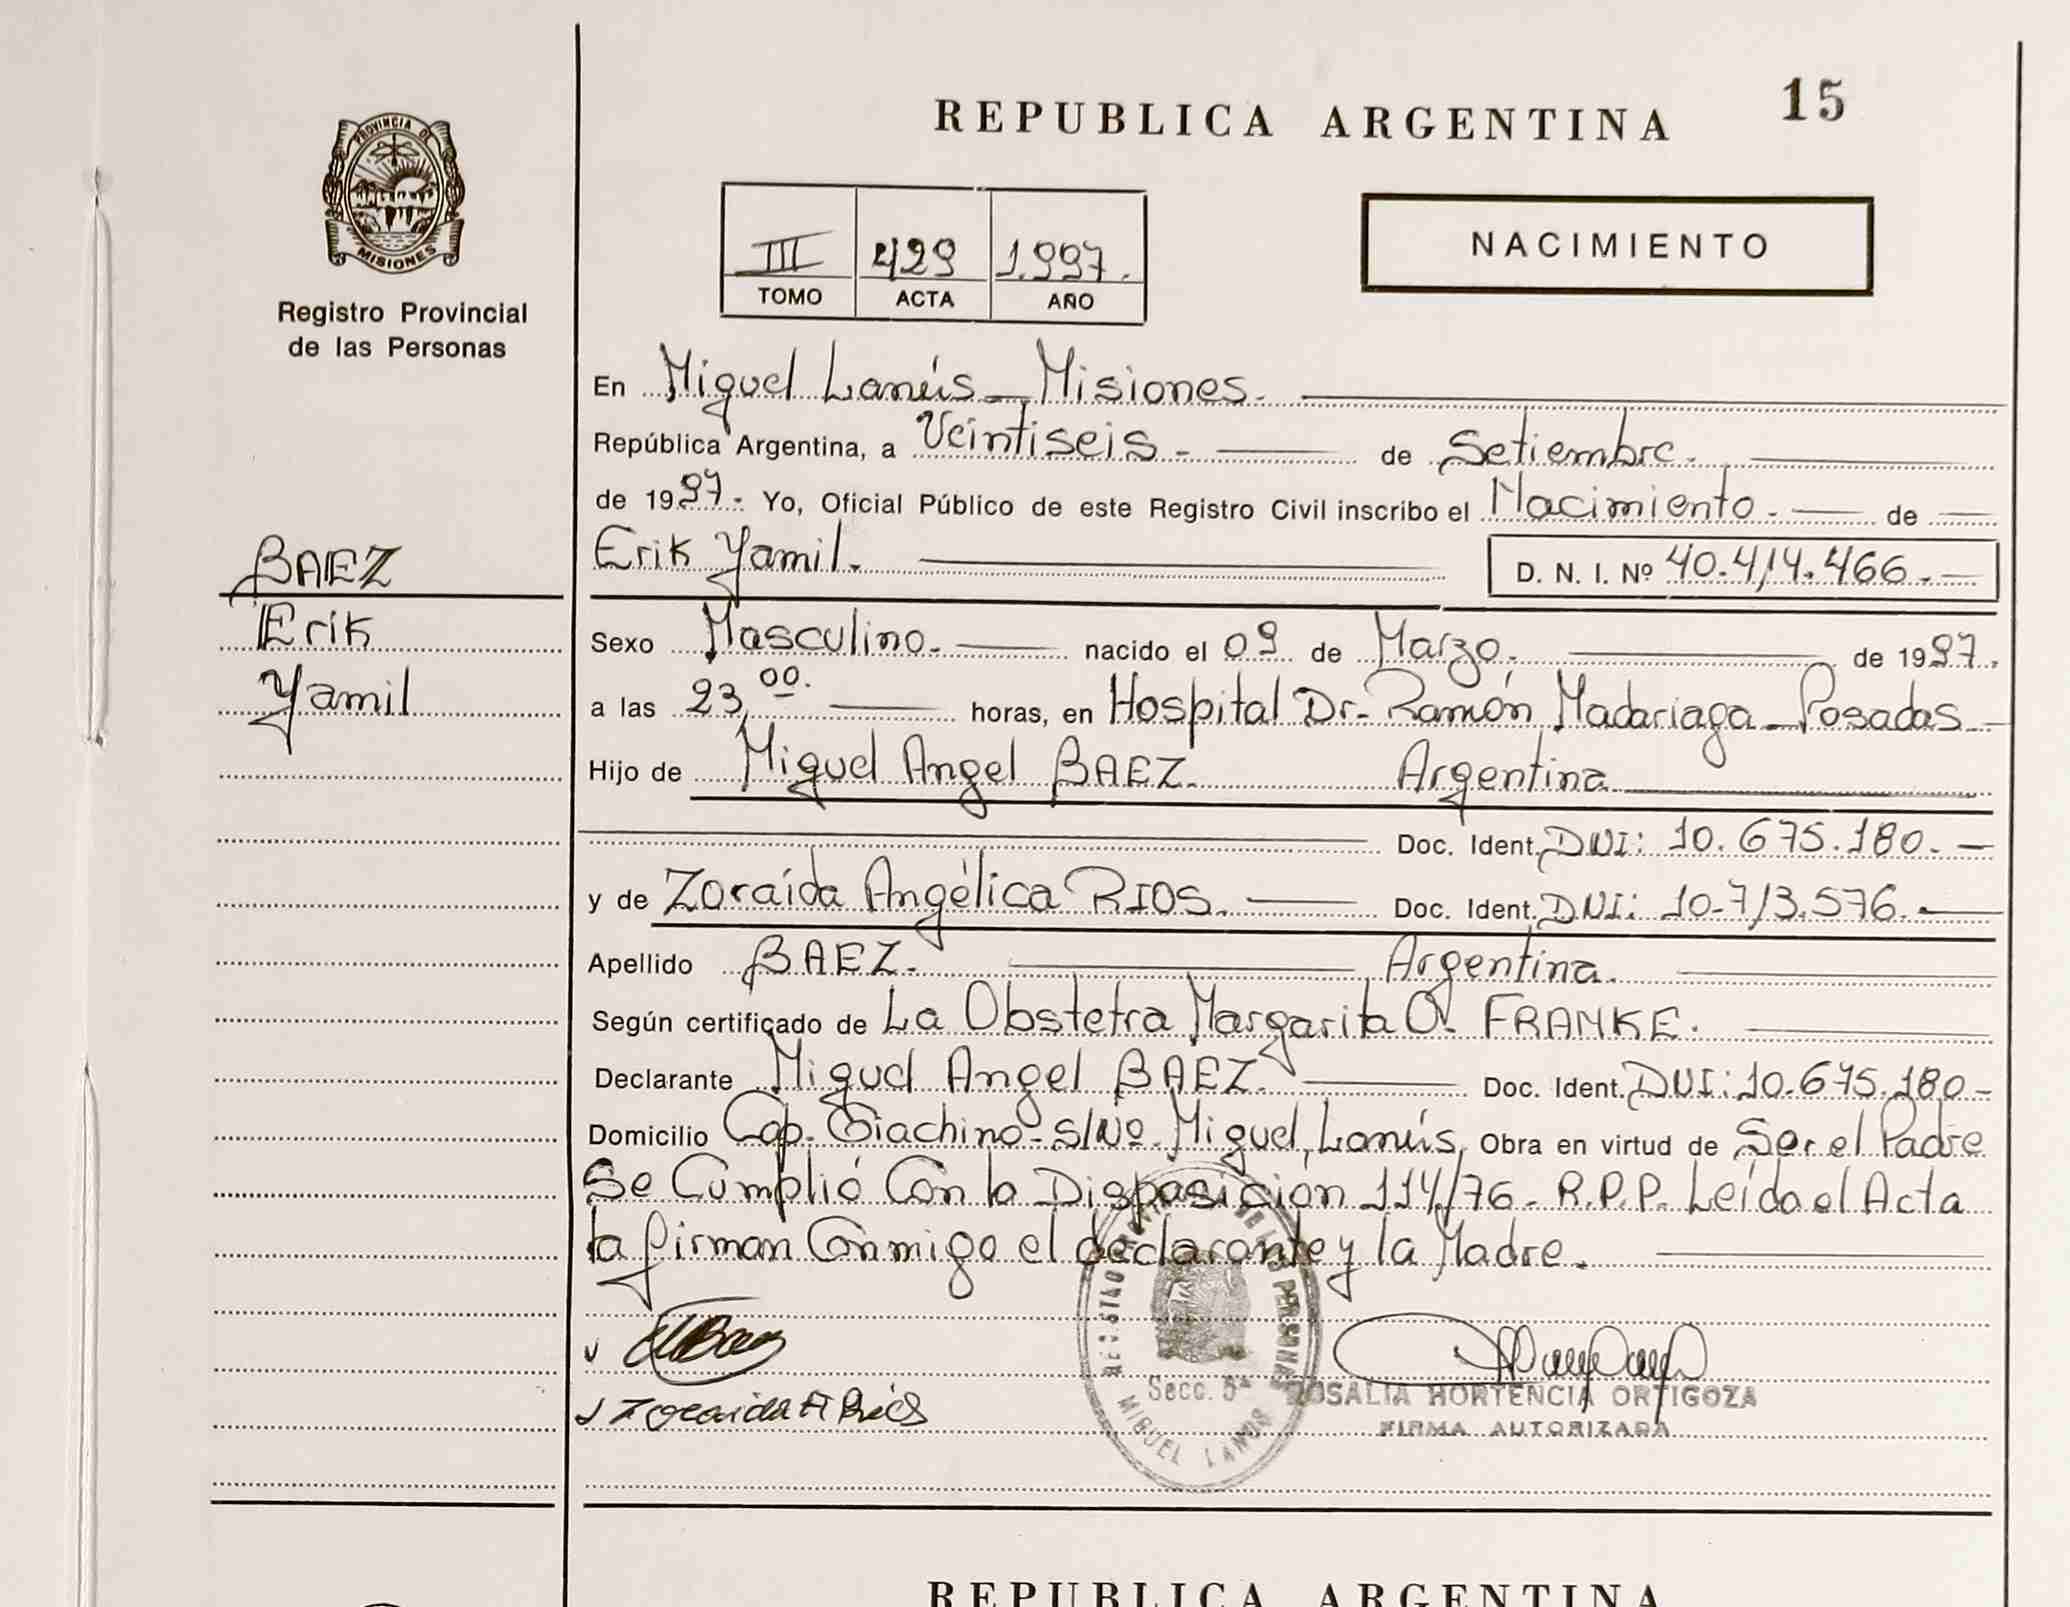 REPUBLICA ARGENTINA
15
PROVINCIA DE
MISIONES
Registro Provincial
de las Personas
III 429 1.997.
TOMO ACTA AÑO
NACIMIENTO
En Miguel Lanús - Misiones.
República Argentina, a Veintiseis - de Setiembre.
de 1997. Yo, Oficial Público de este Registro Civil inscribo el Nacimiento. de
Erik Yamil. D. N. I. Nº 40.414.466.-
BAEZ
Erik
Yamil
Sexo Masculino. nacido el 09 de Marzo. de 1997.
a las 23,00. horas, en Hospital Dr. Ramón Madariaga - Posadas
Hijo de Miguel Angel BAEZ. Argentina
Doc. Ident. DNI: 10.675.180.-
y de Zoraída Angélica RIOS. Doc. Ident. DNI: 10.713.576.-
Apellido BAEZ. Argentina.
Según certificado de La Obstetra Margarita O. FRANKE.
Declarante Miguel Angel BAEZ. Doc. Ident. DNI: 10.675.180-
Domicilio Cap. Giachino - S/Nº. Miguel Lanús, Obra en virtud de Ser el Padre
Se Cumplió Con la Disposición 114/76 - R.P.P. Leída el Acta
la firman Conmigo el declarante y la Madre.
Zoraida A Rios
Secc. 5ª
MIGUEL LANUS
ROSALIA HORTENCIA ORTIGOZA
FIRMA AUTORIZADA
REPUBLICA ARGENTINA